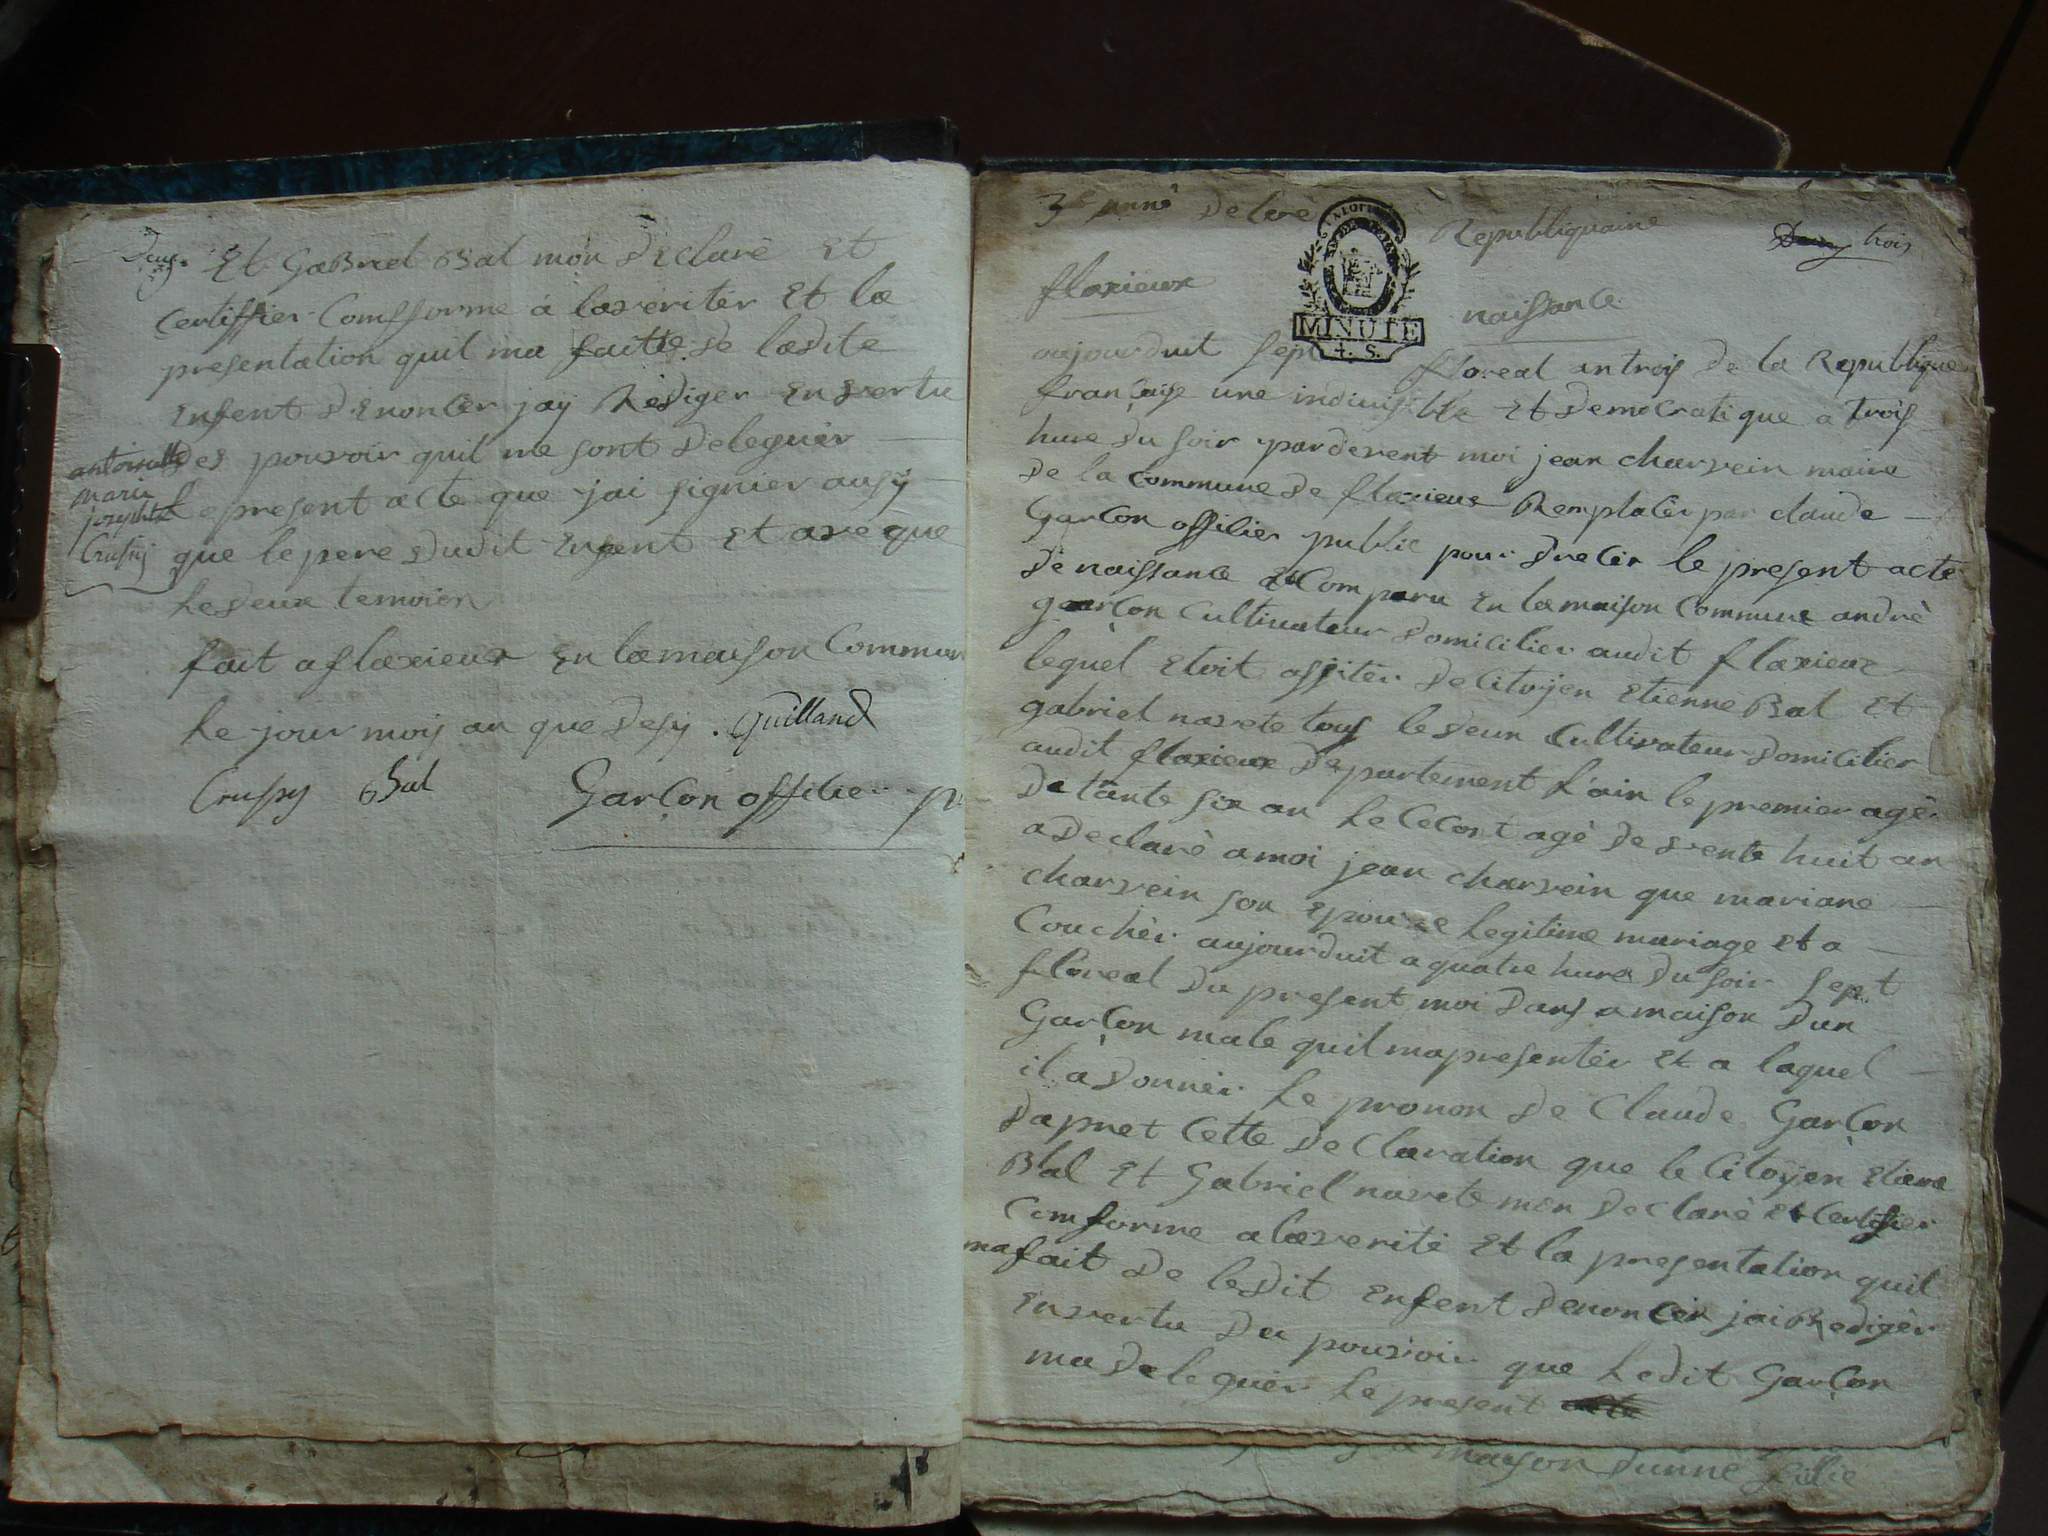 Deux. Et Gabriel Bal mon declaré Et
Certiffier Comfforme á laveriter Et la
presentation quil ma faitte de ladite
Enfent denoncer jay Rédiger Envertu
des pouvoir quil me sont deleguér
le present acte que jai signier ausy
que le pere dudit Enfent Et aveque
Le deux temoien
fait a flaxieux En lamaison Commun
Le jour mois an que desy . Quilland
Crussy Bal Garçon offilier p
antoinette
marie
josephte
Crussy
3e anné de lere Republiquaine
Deux trois
flaxieux
naissance
MINUTE
4. S.
aujourduit sept floreal an trois de la Republique
française une indivisible Et democratique a trois
hure du soir pardevent moi jean charvein maire
de la Commune de flaxieux Remplacér par claude
Garçon offilier public pour drecér le present acte
de naissance Et Comparu En lamaison Commune andrè
garçon Cultivateur domicilier audit flaxieux
lequel Etoit assitér de Citoyen Etienne Bal Et
gabriel navete tous le deux Cultivateur domicilier
audit flaxieux departement L'ain le premier agè
de tante six an Le Cecont agè de vente huit an
a declarè a moi jean charvein que mariane
charvein son Epouse Legitime mariage et a
Couchér aujourduit a quatre hure du soir sept
floreal du present moi dans a maison dun
Garçon male quil mapresentér Et a laquel
il a donnér Le pronon de Claude Garçon
dapret Cette declaration que le Citoyen Etiene
Bal Et Gabriel navete mon declarè Et Certifier
Comforme alaverité Et la presentation quil
mafait de ledit Enfent denoncér jai Redigèr
Envertu du pouvoir que Ledit Garçon
ma deleguér Le present acte
maison dunne fillie